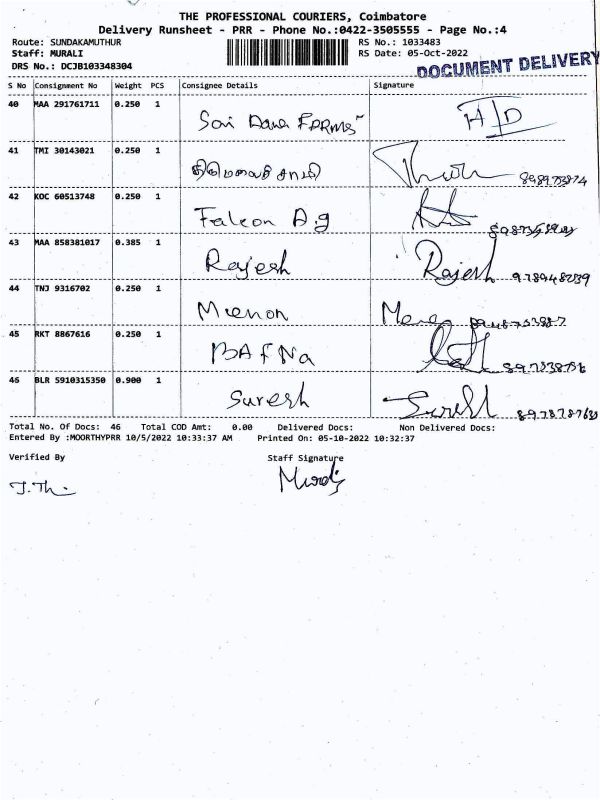 THE PROFESSIONAL COURIERS, Coimbatore
Delivery Runsheet - PRR - Phone No.:0422-3505555 - Page No.:4
Route: SUNDAKAMUTHUR RS No.: 1033483
Staff: MURALI RS Date: 05-Oct-2022
DRS No.: DCJB103348304 DOCUMENT DELIVERY
S No Consignment No Weight PCS Consignee Details Signature
40 MAA 291761711 0.250 1
41 TMI 30143021 0.250 1
42 KOC 60513748 0.250 1 Falcon A.g
43 MAA 858381017 0.385 1 Rajesh Rajesh
44 TNJ 9316702 0.250 1 Menon
45 RKT 8867616 0.250 1 BAFNa
46 BLR 5910315350 0.900 1 Suresh Suresh
Total No. Of Docs: 46 Total COD Amt: 0.00 Delivered Docs: Non Delivered Docs:
Entered By :MOORTHYPRR 10/5/2022 10:33:37 AM Printed On: 05-10-2022 10:32:37
Verified By Staff Signature